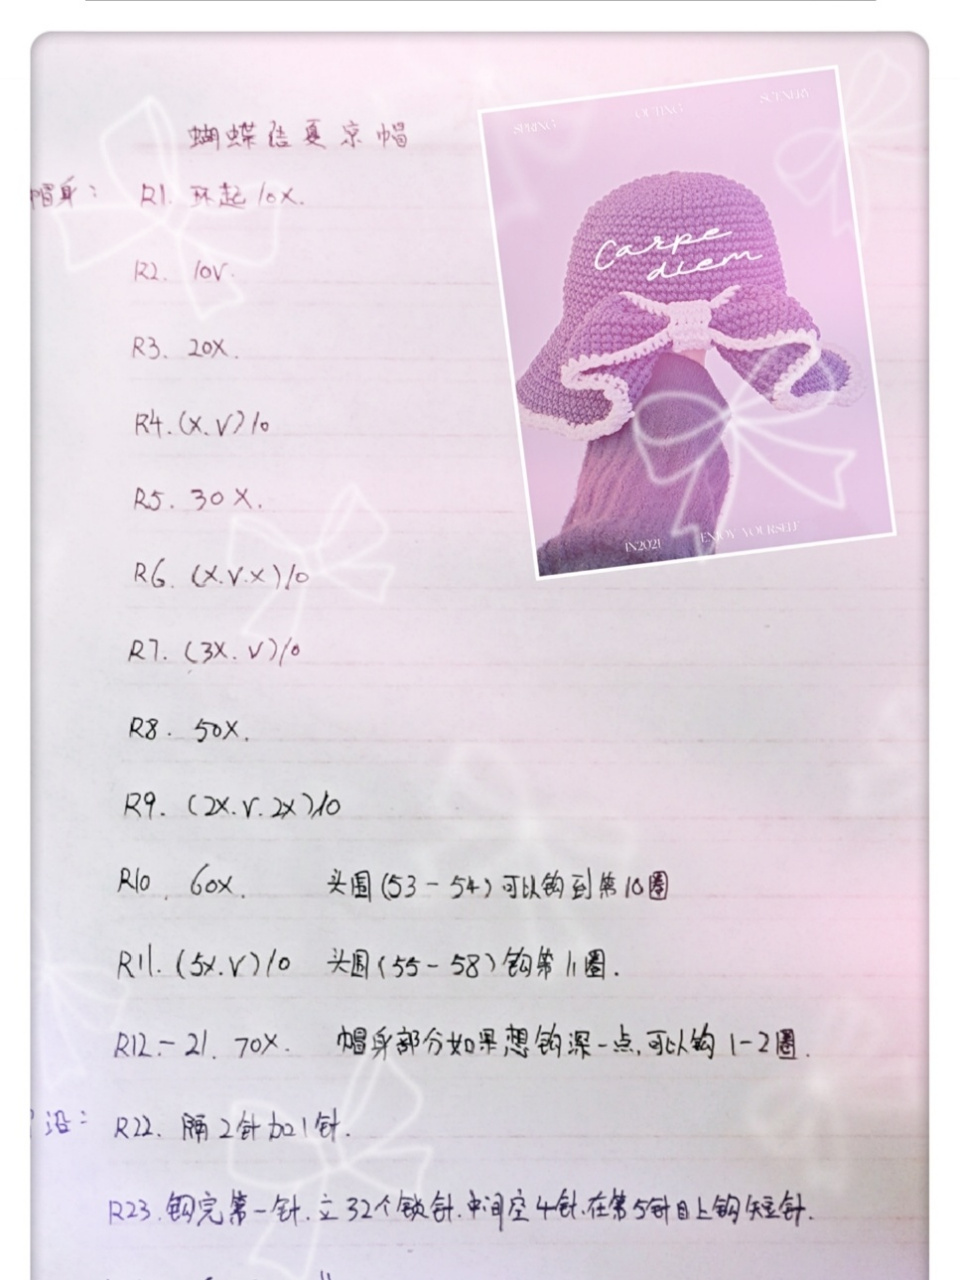 蝴蝶结夏凉帽
帽身: R1. 环起10X.
R2. 10V.
R3. 20X.
R4. (X.V)10
R5. 30X.
R6. (X.V.X)10
R7. (3X.V)10
R8. 50X.
R9. (2X.V.2X)10
R10. 60X. 头围(53-54)可以钩到第10圈
R11. (5X.V)10 头围(55-58)钩第11圈.
R12.-21. 70X. 帽身部分如果想钩深一点,可以钩1-2圈.
沿: R22. 隔2针加1针.
R23. 钩完第一针.立32个锁针.中间空4针.在第5针目上钩短针.
SPRING OUTING SCENERY
Carpe
diem
IN2021 ENJOY YOURSELF